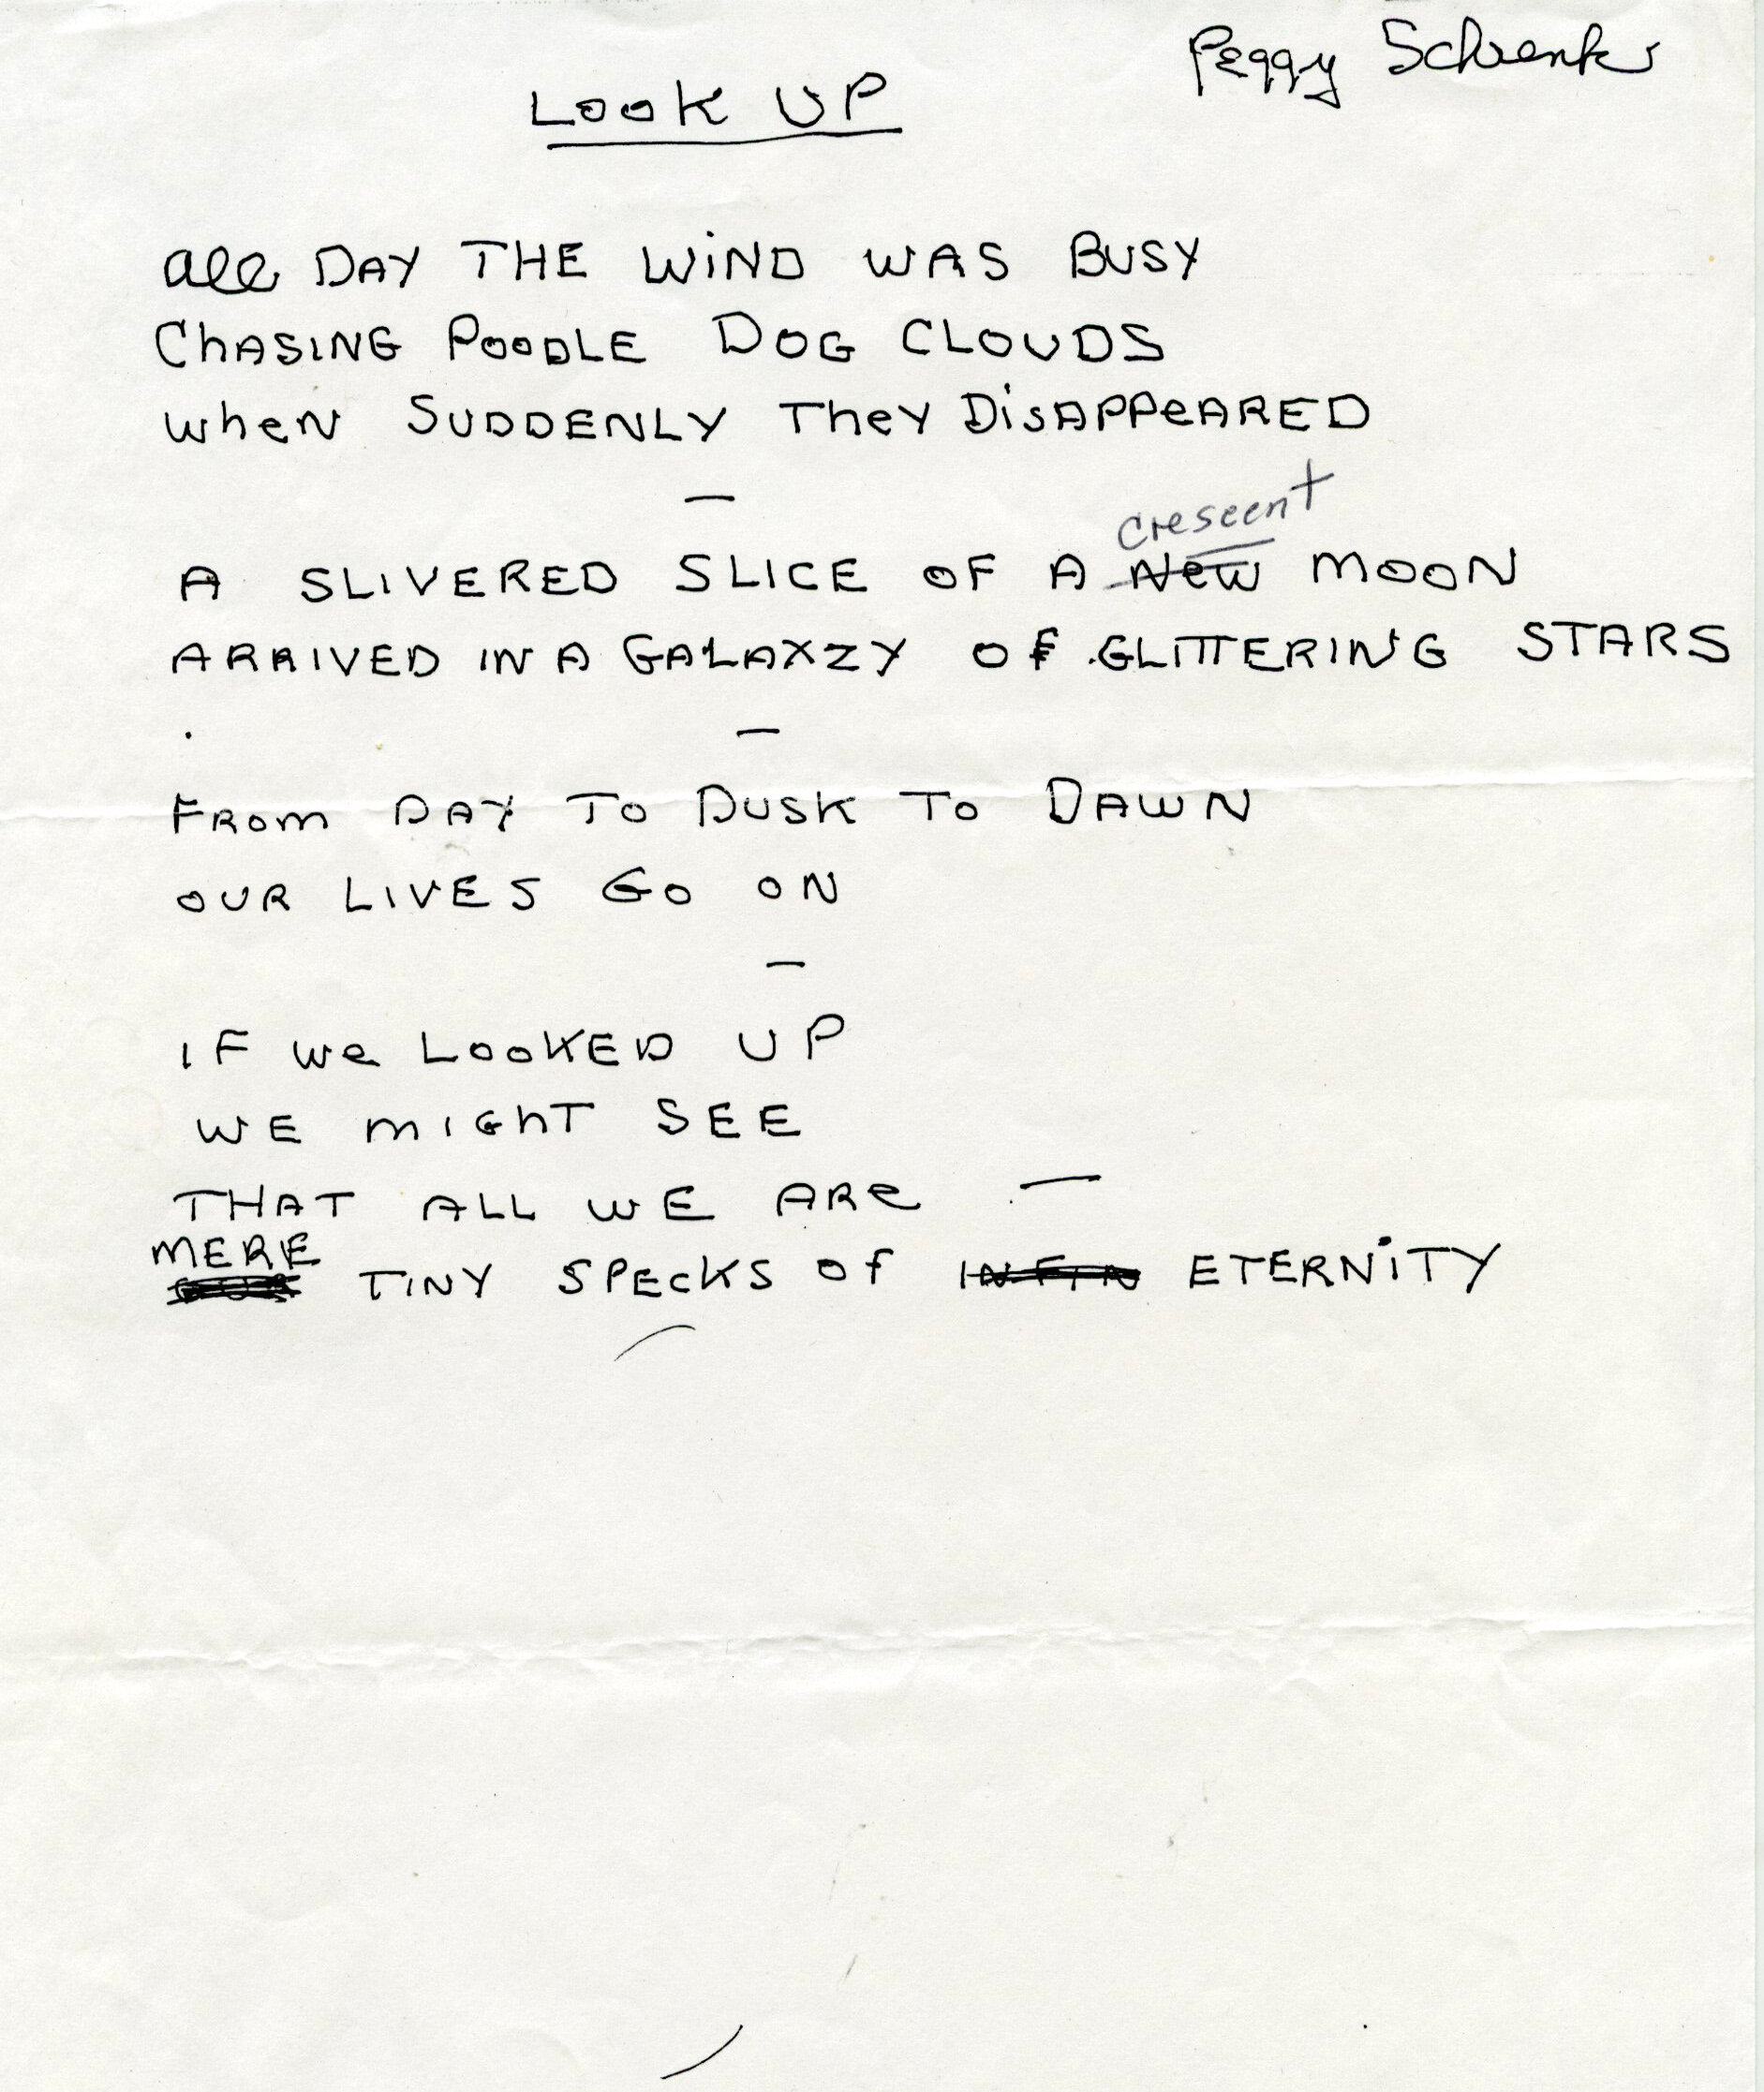 Peggy Schrenk
LOOK UP
All DAY THE WiND WAS BUSY
ChASING POODLE DOG CLOUDS
when SUDDENLY TheY DiSAPPeARED
—
crescent
A SLIVERED SLICE OF A New MOON
ARRIVED IN A GALAXZY OF GLITTERING STARS
—
FROM DAY TO DUSK TO DAWN
OUR LIVES GO ON
—
IF we LOOKED UP
WE mIGhT SEE
THAT ALL WE ARe —
MERE
TINY SPECKS OF INFIN ETERNiTY